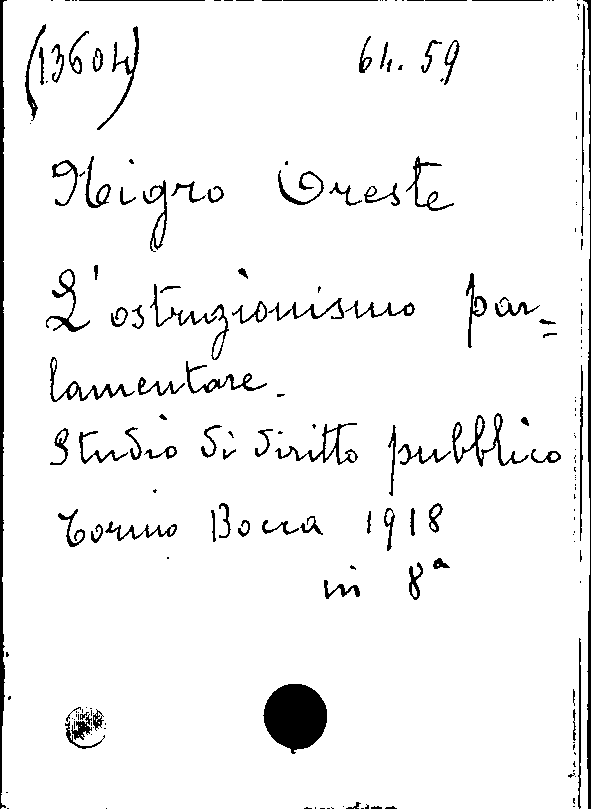 (13604) 64.59
Nigro Oreste
L'ostruzionismo par=
lamentare.
Studio di diritto pubblico
Torino Bocca 1918
in 8ª